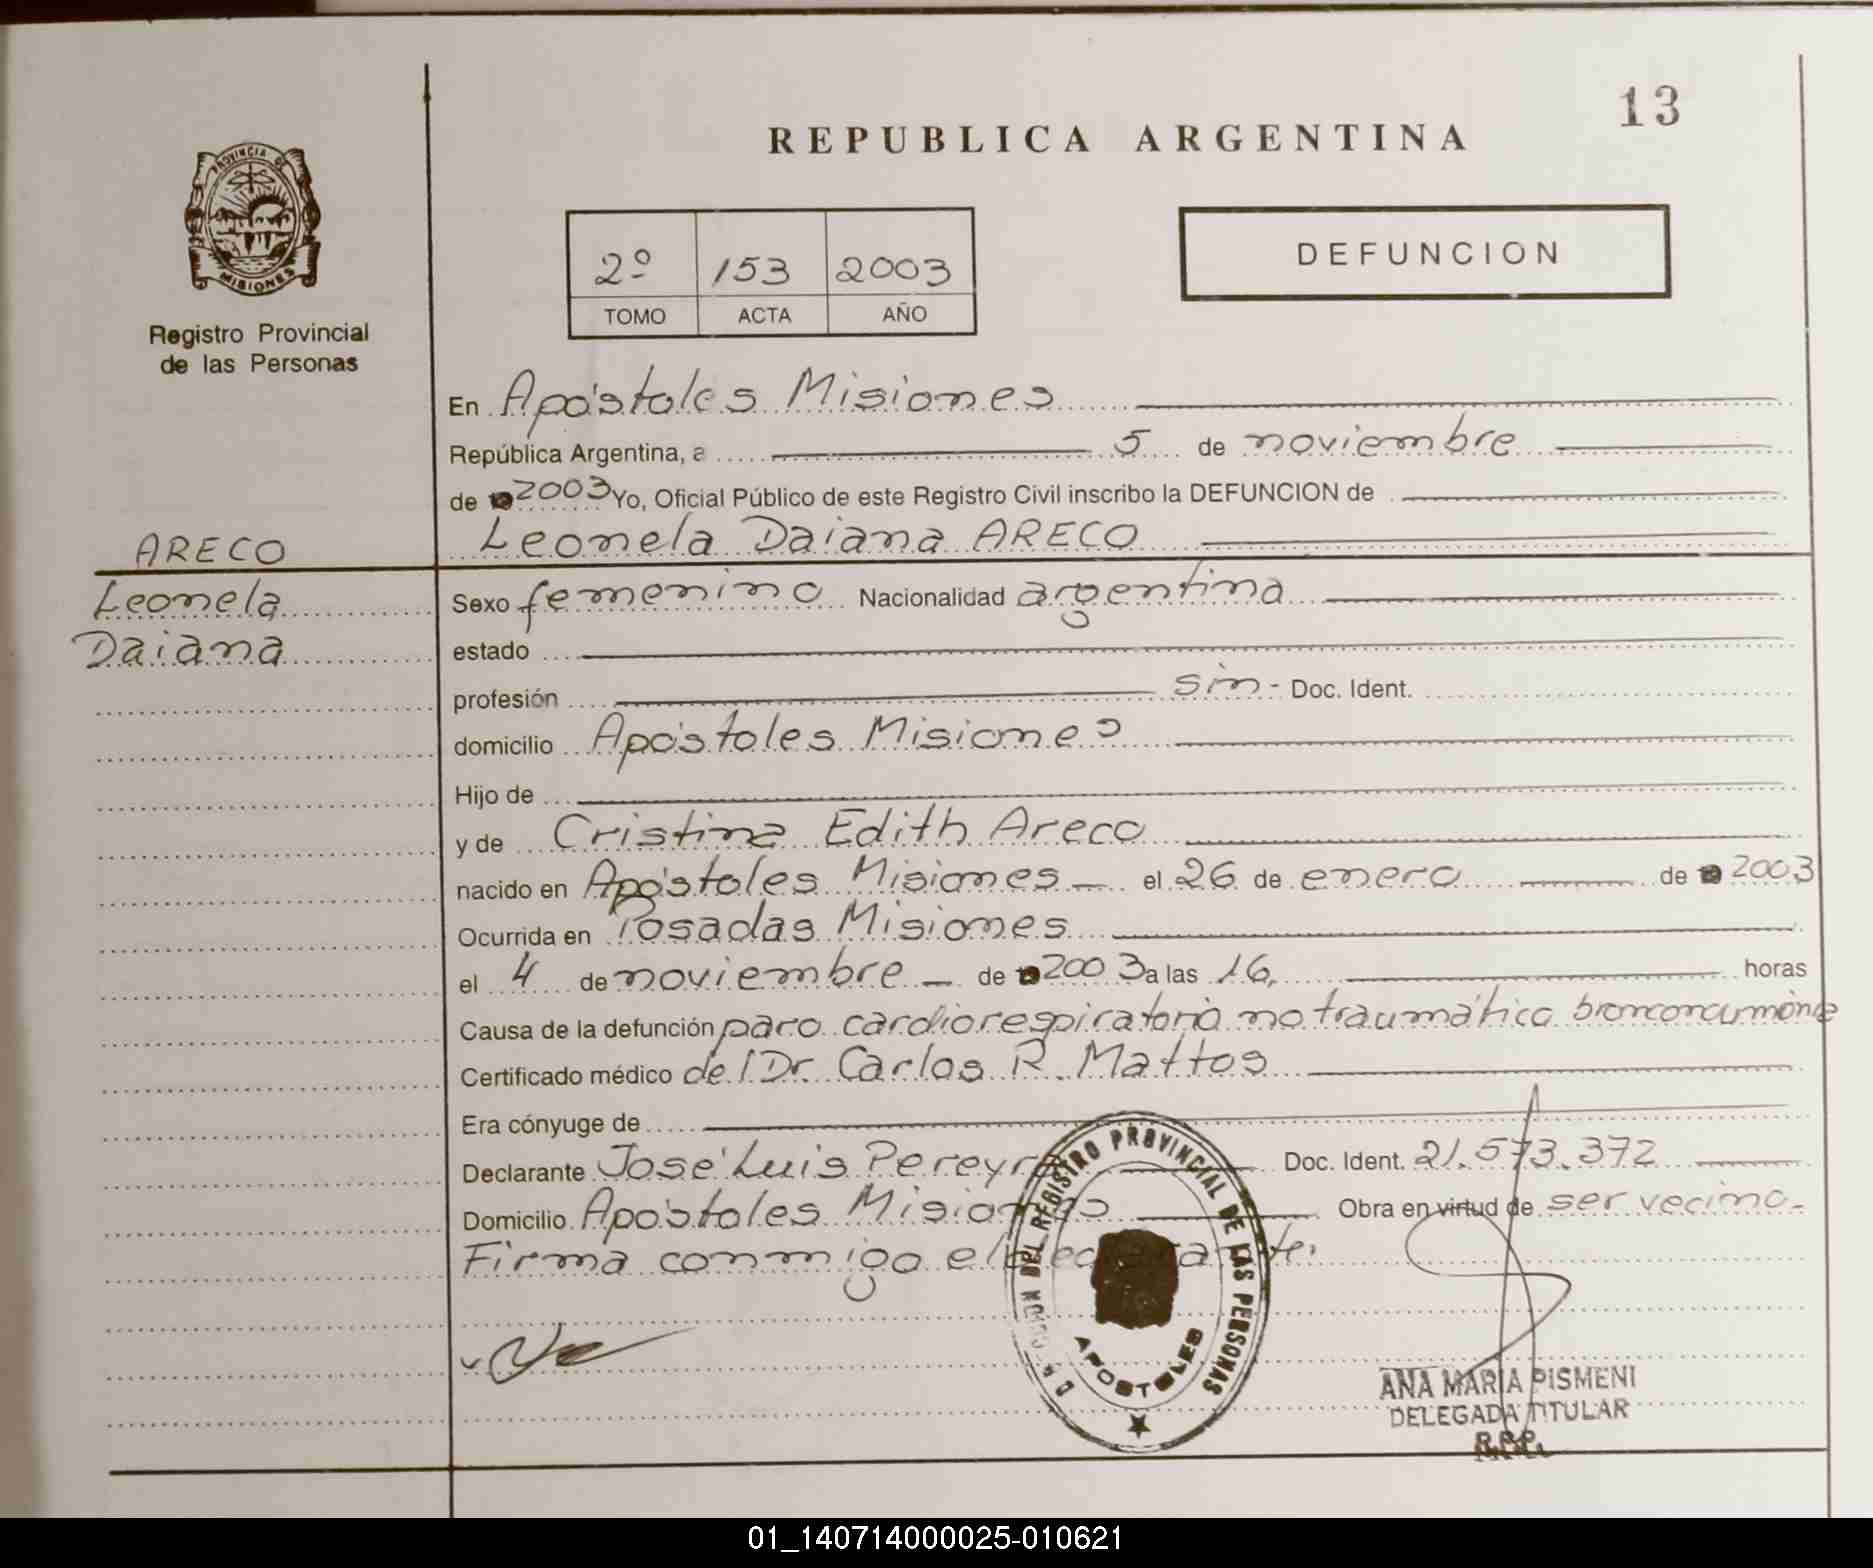 13
REPUBLICA ARGENTINA
PROVINCIA DE
MISIONES
Registro Provincial
de las Personas
2º 153 2003
TOMO ACTA AÑO
DEFUNCION
En Apóstoles Misiones
República Argentina, a 5 de noviembre
de 2003 Yo, Oficial Público de este Registro Civil inscribo la DEFUNCION de
Leonela Daiana ARECO
ARECO
Leonela
Daiana
Sexo femenino Nacionalidad argentina
estado
profesión sin- Doc. Ident.
domicilio Apóstoles Misiones
Hijo de
y de Cristina Edith Areco
nacido en Apóstoles Misiones el 26 de enero de 2003
Ocurrida en Posadas Misiones
el 4 de noviembre de 2003 a las 16, horas
Causa de la defunción paro cardiorespiratorio no traumático
Certificado médico del Dr. Carlos R. Mattos
Era cónyuge de
Declarante José Luis Pereyra Doc. Ident. 21.573.372
Domicilio Apóstoles Misiones Obra en virtud de ser vecino.
Firma conmigo el declarante.
DEL REGISTRO PROVINCIAL DE LAS PERSONAS
APOSTOLES
ANA MARIA PISMENI
DELEGADA TITULAR
R.P.P.
01_140714000025-010621